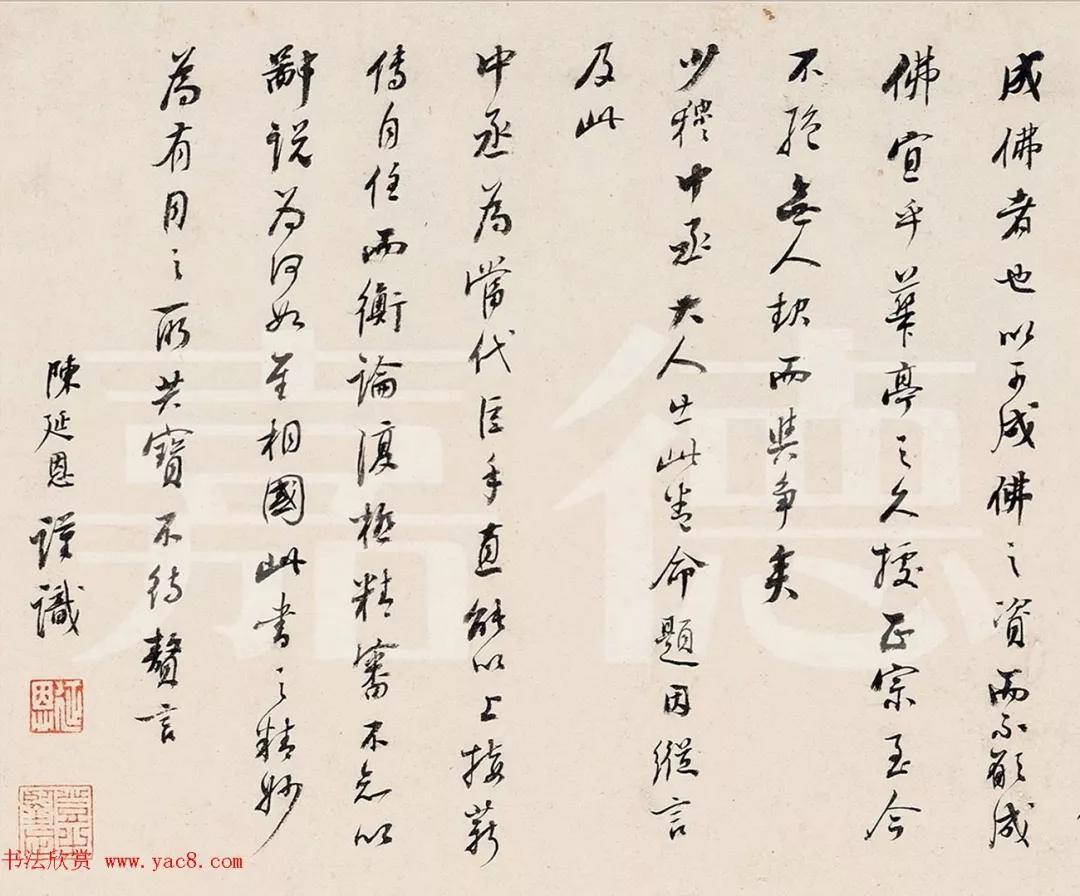 成佛者也以可成佛之資而不願成
佛宜乎華亭之久據正宗至今
不無人起而與爭矣
少穆中丞大人出此卷命題因縱言
及此
中丞為當代巨手直能以上接薪
傳自任而衡論復極精審不知以
鄙說為何如至相國此書之精妙
為有目之所共寶不待贅言
陳延恩謹識
延恩
嘉德
书法欣赏 www.yac8.com